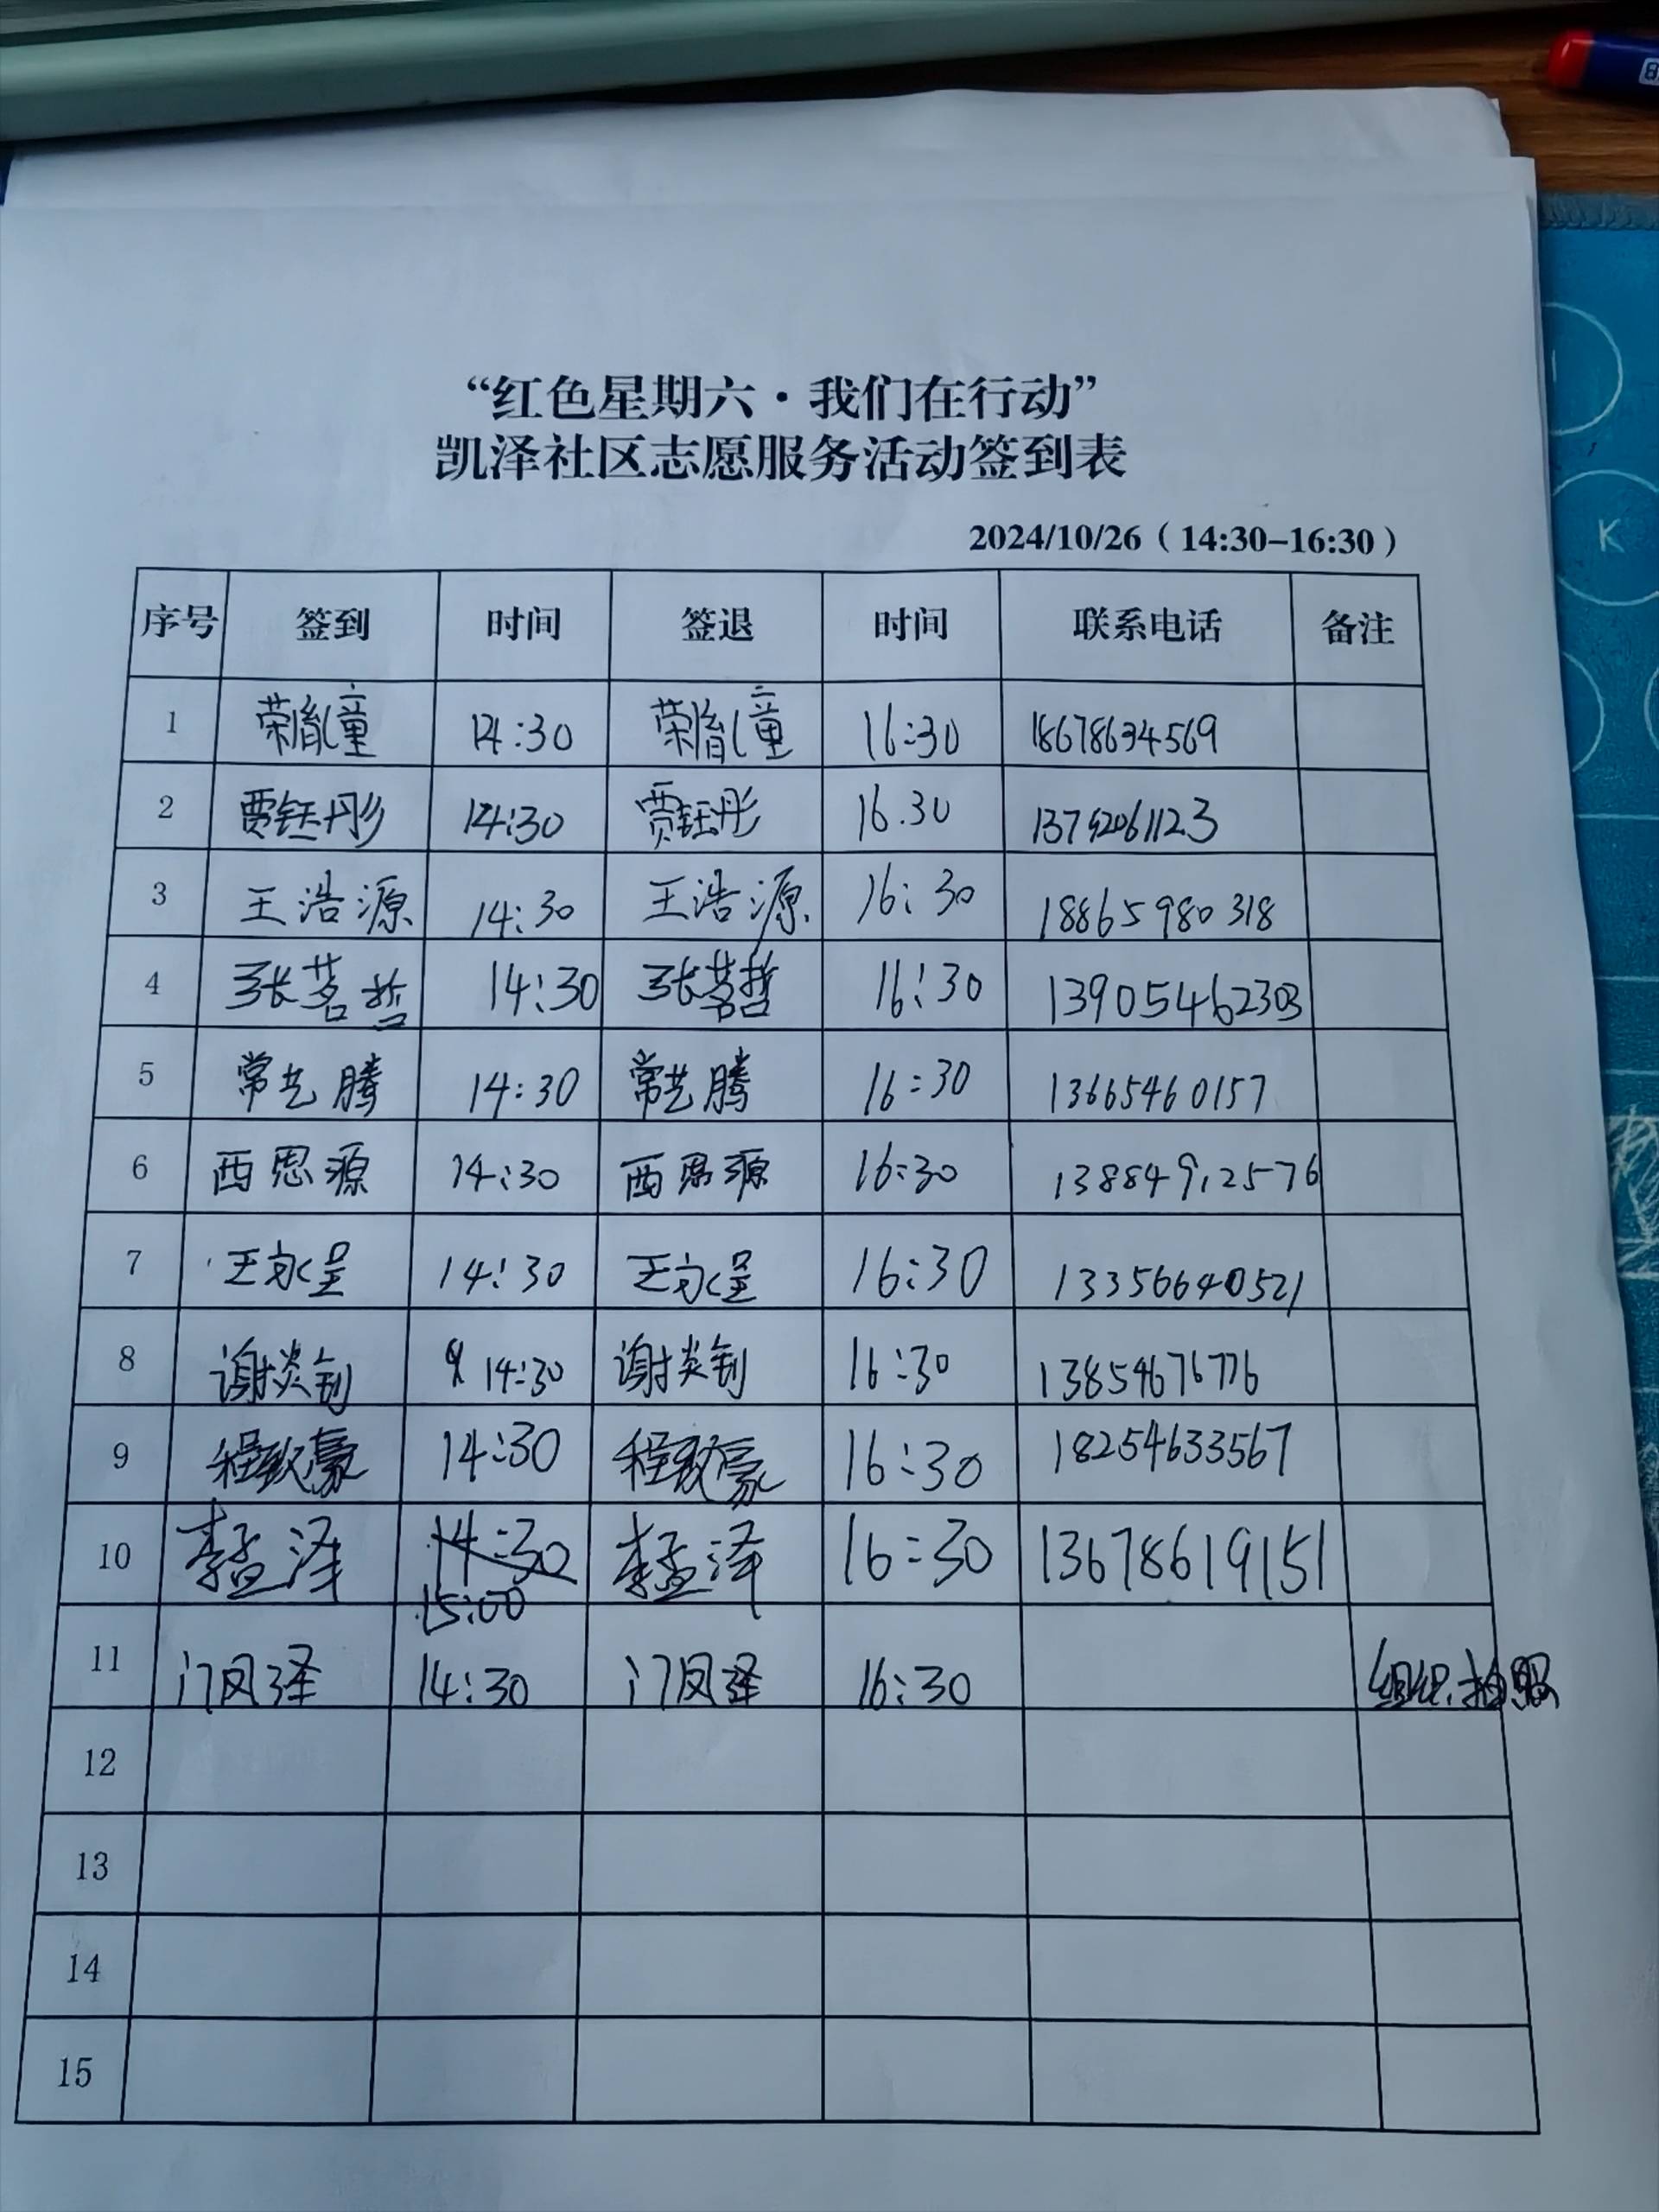 “红色星期六·我们在行动”
凯泽社区志愿服务活动签到表
2024/10/26（14:30-16:30）
序号 签到 时间 签退 时间 联系电话 备注
1 荣胤童 14:30 荣胤童 16:30 18678634569
2 贾钰彤 14:30 贾钰彤 16.30 13792061123
3 王浩源 14:30 王浩源 16:30 18865980318
4 张茗哲 14:30 张茗哲 16:30 13905462303
5 常艺腾 14:30 常艺腾 16:30 13665460157
6 西思源 14:30 西思源 16:30 13884912576
7 王永呈 14:30 王永呈 16:30 13356640521
8 谢炎钊 14:30 谢炎钊 16:30 13854676776
9 程致豪 14:30 程致豪 16:30 18254633567
10 李孟泽 14:30 李孟泽 16:30 13678619151
15:00
11 门凤泽 14:30 门凤泽 16:30 组织.拍照
12
13
14
15
K